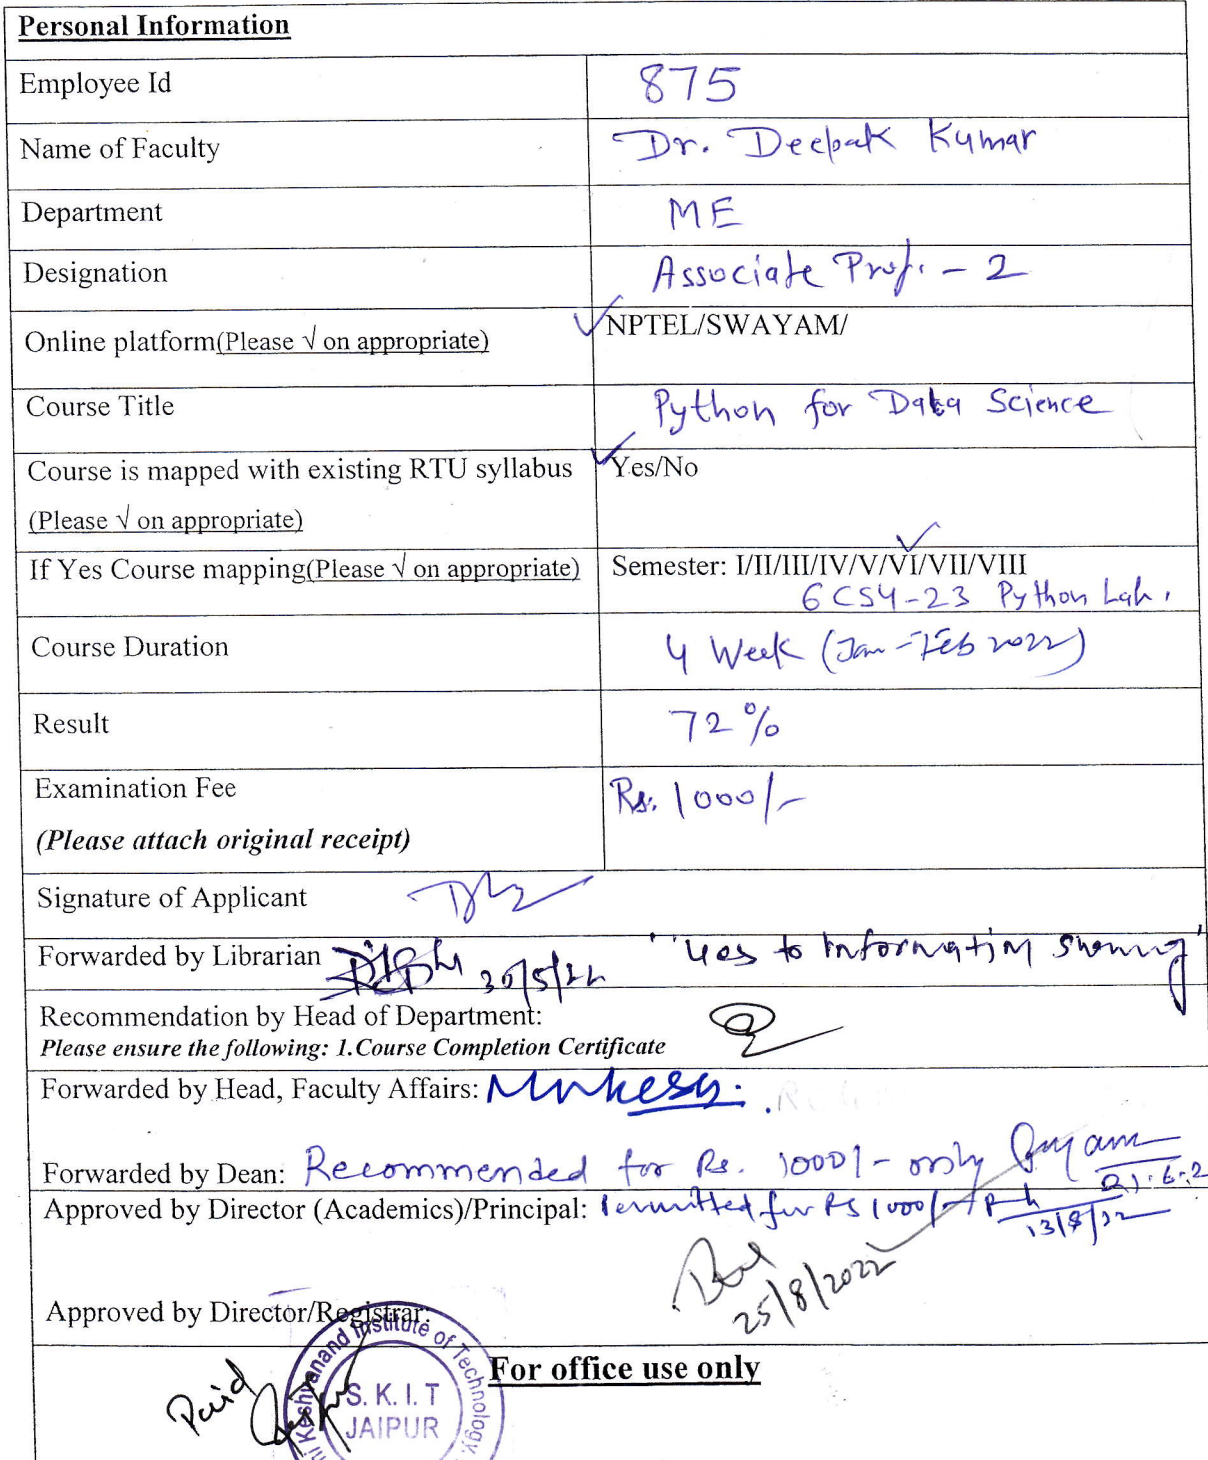 Personal Information
Employee Id 875
Name of Faculty Dr. Deepak Kumar
Department ME
Designation Associate Prof. - 2
Online platform(Please √ on appropriate) ✓NPTEL/SWAYAM/
Course Title Python for Data Science
Course is mapped with existing RTU syllabus ✓Yes/No
(Please √ on appropriate)
✓
If Yes Course mapping(Please √ on appropriate) Semester: I/II/III/IV/V/VI/VII/VIII
6CS4-23 Python Lab.
Course Duration 4 Week (Jan-Feb 2022)
Result 72%
Examination Fee Rs. 1000/-
(Please attach original receipt)
Signature of Applicant
Forwarded by Librarian 30/5/22 "Yes to Information
Recommendation by Head of Department:
Please ensure the following: 1.Course Completion Certificate
Forwarded by Head, Faculty Affairs: Mukesh.
Forwarded by Dean: Recommended for Rs. 1000/- only
Approved by Director (Academics)/Principal: Permitted for Rs 1000/-
13/8/22
25/8/2022
Approved by Director/Registrar:
For office use only
Paid
Keshvanand Institute of Technology,
S. K. I. T
JAIPUR